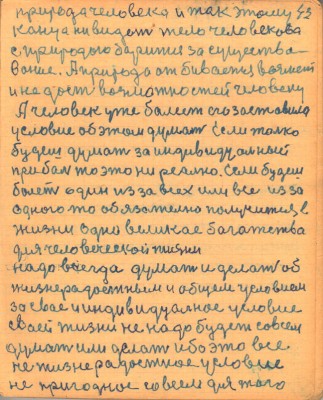 природа человека и так этому 43
конца ни видот тело человекова
с природого борится за существа-
вание. А природа от бивается
и не дост возможностей человеку
А человек уже болеет его заставило
условие об этом думат если толко
будеш думат за индивидуалный
прибал то это ни реално. Если будеш
болет один из за всех или все из за
одного то обязателно получится в
жизни одно великое богатства
для человеческой жизни
надо всегда думат и делат об
жизнерадостным и общем условием
за свае и индивидуалное условие
сваей жизни не надо будет совсем
думат или делат ибо это все
не жизнерадостное условие
не пригодное совсем для того